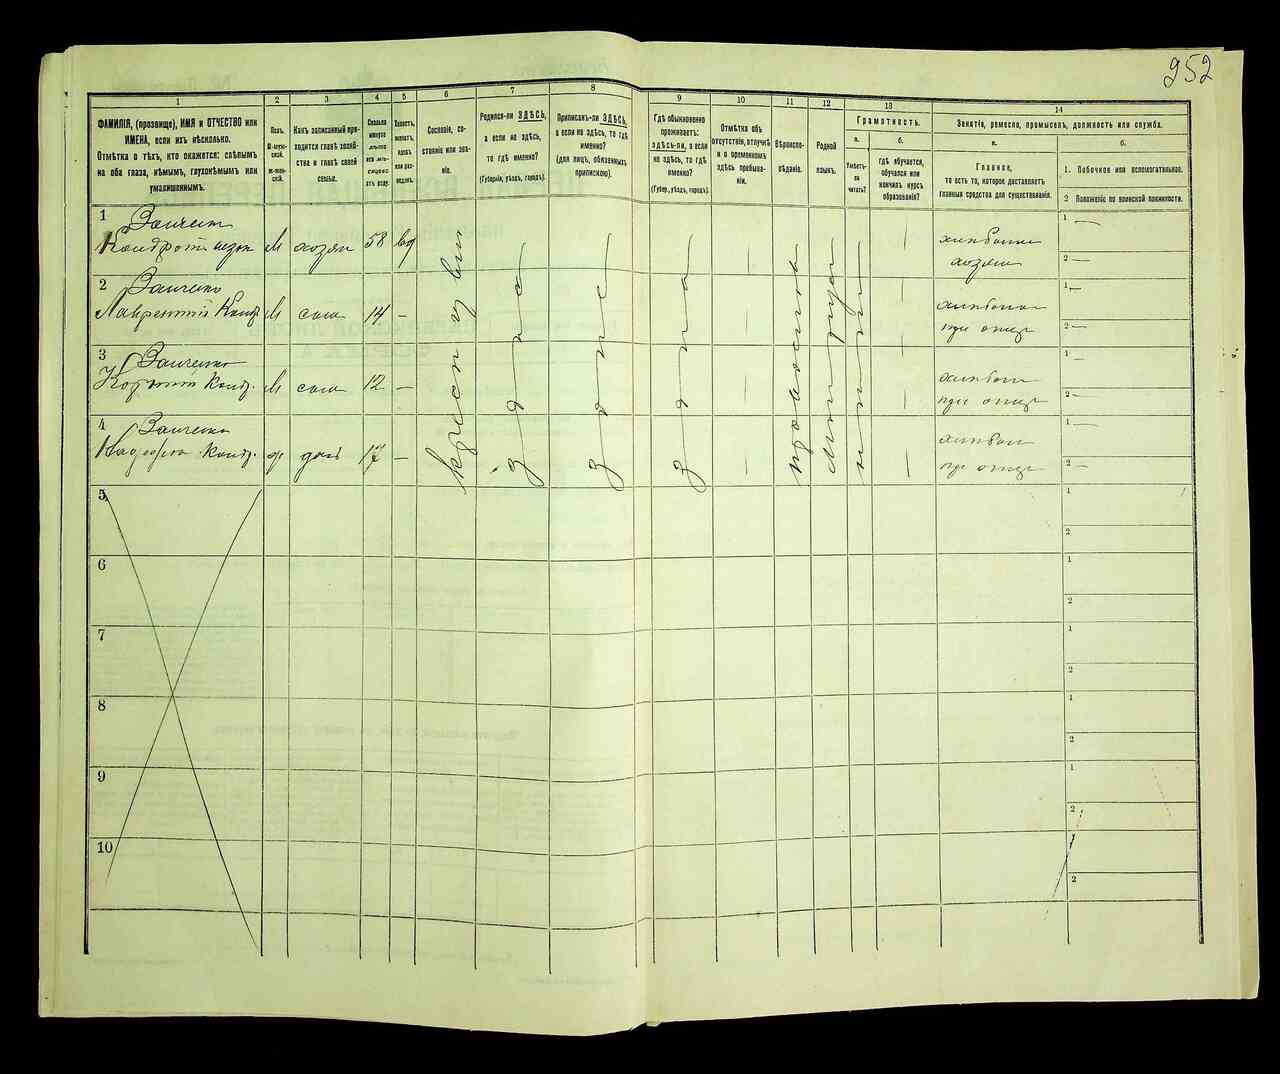 252
1
2
3
4
5
6
7
8
9
10
11
12
13
14
ФАМИЛІЯ, (прозвище), ИМЯ и ОТЧЕСТВО или
ИМЕНА, если ихъ нѣсколько.
Отмѣтка о тѣхъ, кто окажется: слѣпымъ
на оба глаза, нѣмымъ, глухонѣмымъ или
умалишеннымъ.
Полъ.
М-мужской.
Ж-женскій.
Какъ записанный приходится
главѣ хозяйства
и главѣ своей
семьи.
Сколько
минуло
лѣтъ
или мѣсяцевъ
отъ роду.
Холостъ,
женатъ,
вдовъ
или разведенъ.
Сословіе, состояніе
или званіе.
Родился-ли ЗДѢСЬ,
а если не здѣсь,
то гдѣ именно?
(Губернія, уѣздъ, городъ).
Приписанъ-ли ЗДѢСЬ,
а если не здѣсь, то гдѣ
именно?
(для лицъ, обязанныхъ
припискою).
Гдѣ обыкновенно
проживаетъ:
ЗДѢСЬ-ли, а если
не здѣсь, то гдѣ
именно?
(Губер., уѣздъ, городъ).
Отмѣтка объ
отсутствіи, отлучкѣ
и о временномъ
здѣсь пребываніи.
Вѣроисповѣданіе.
Родной
языкъ.
Грамотность.
а.
Умѣетъ-ли
читать?
б.
гдѣ обучается,
обучался или
кончилъ курсъ
образованія?
Занятіе, ремесло, промыселъ, должность или служба.
а.
Главное,
то есть то, которое доставляетъ
главныя средства для существованія.
б.
1. Побочное или вспомогательное.
2 Положеніе по воинской повинности.
1
Заиченко
М
хозяи
58
вд
хозяи
1 —
2 —
2
Заиченко
Лаврентій Конд.
М
сын
14
—
при отцѣ
1 —
2 —
3
Заиченко
Конд.
М
сын
12
—
при отцѣ
1 —
2 —
4
Заиченко
Конд.
ж
дочь
17
—
при отцѣ
1 —
2 —
здѣсь
здѣсь
здѣсь
5
1
2
6
1
2
7
1
2
8
1
2
9
1
2
10
1
2